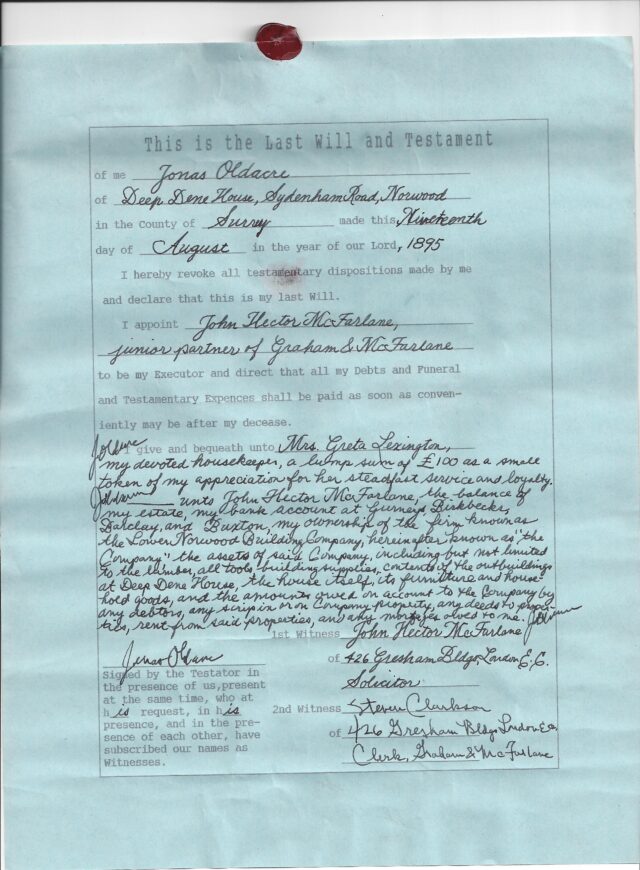 This is the Last Will and Testament
of me Jonas Oldacre
of Deep Dene House, Sydenham Road, Norwood
in the County of Surrey made this Nineteenth
day of August in the year of our Lord, 1895
I hereby revoke all testamentary dispositions made by me
and declare that this is my last Will.
I appoint John Hector McFarlane,
junior partner of Graham & McFarlane
to be my Executor and direct that all my Debts and Funeral
and Testamentary Expences shall be paid as soon as conven-
iently may be after my decease.
I give and bequeath unto Mrs. Greta Lexington,
my devoted housekeeper, a lump sum of £100 as a small
token of my appreciation for her steadfast service and loyalty.
unto John Hector McFarlane, the balance of
my estate, my bank account at Gurneys Birkbecks,
Barclay, and Buxton, my ownership of the firm known as
the Lower Norwood Building Company, hereinafter known as "the
Company" the assets of said Company, including but not limited
to the lumber, all tools, building supplies, contents of the outbuildings
at Deep Dene House, the house itself, its furniture and house-
hold goods, and the amounts owed on account to the Company by
any debtors, any scrip in or on Company property, any deeds to proper-
ties, rent from said properties, and any mortgages owed to me.
1st Witness John Hector McFarlane
Jonas Oldacre of 426 Gresham Bldgs, London E.C.
Solicitor
Signed by the Testator in
the presence of us, present
at the same time, who at
his request, in his
presence, and in the pre-
sence of each other, have
subscribed our names as
Witnesses.
2nd Witness Steven Clarkson
of 426 Gresham Bldgs London E.C.
Clerk, Graham & McFarlane